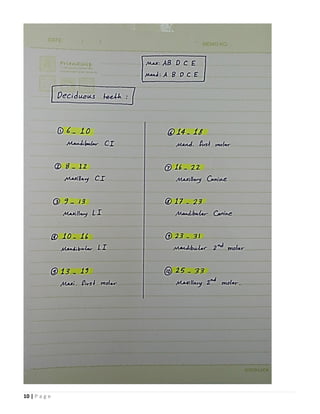 DATE
MEMO NO.
Friendship
Max: AB D C E
Mand: A B D C E
Deciduous teeth:
① 6 - 10
Mandibular CI
② 8 - 12
Maxillary CI
③ 9 - 13
Maxillary LI
④ 10 - 16
Mandibular LI
⑤ 13 - 19
Maxi. first molar
⑥ 14 - 18
Mand. first molar
⑦ 16 - 22
Maxillary Canine
⑧ 17 - 23
Mandibular Canine
⑨ 23 - 31
Mandibular 2nd molar
⑩ 25 - 33
Maxillary 2nd molar.
10 | Page